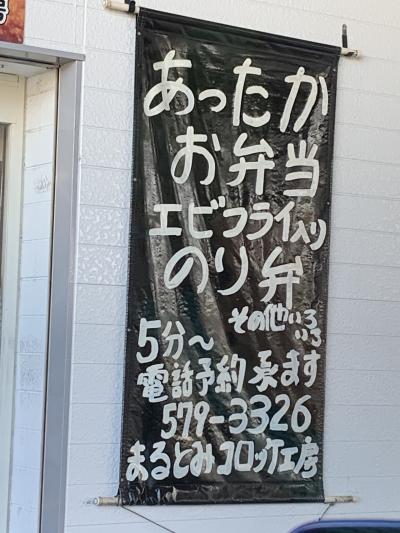 あったか
お弁当
エビフライ入り
のり弁
その他いろいろ
5分〜
電話予約承ます
579-3326
まるとみコロッケ工房